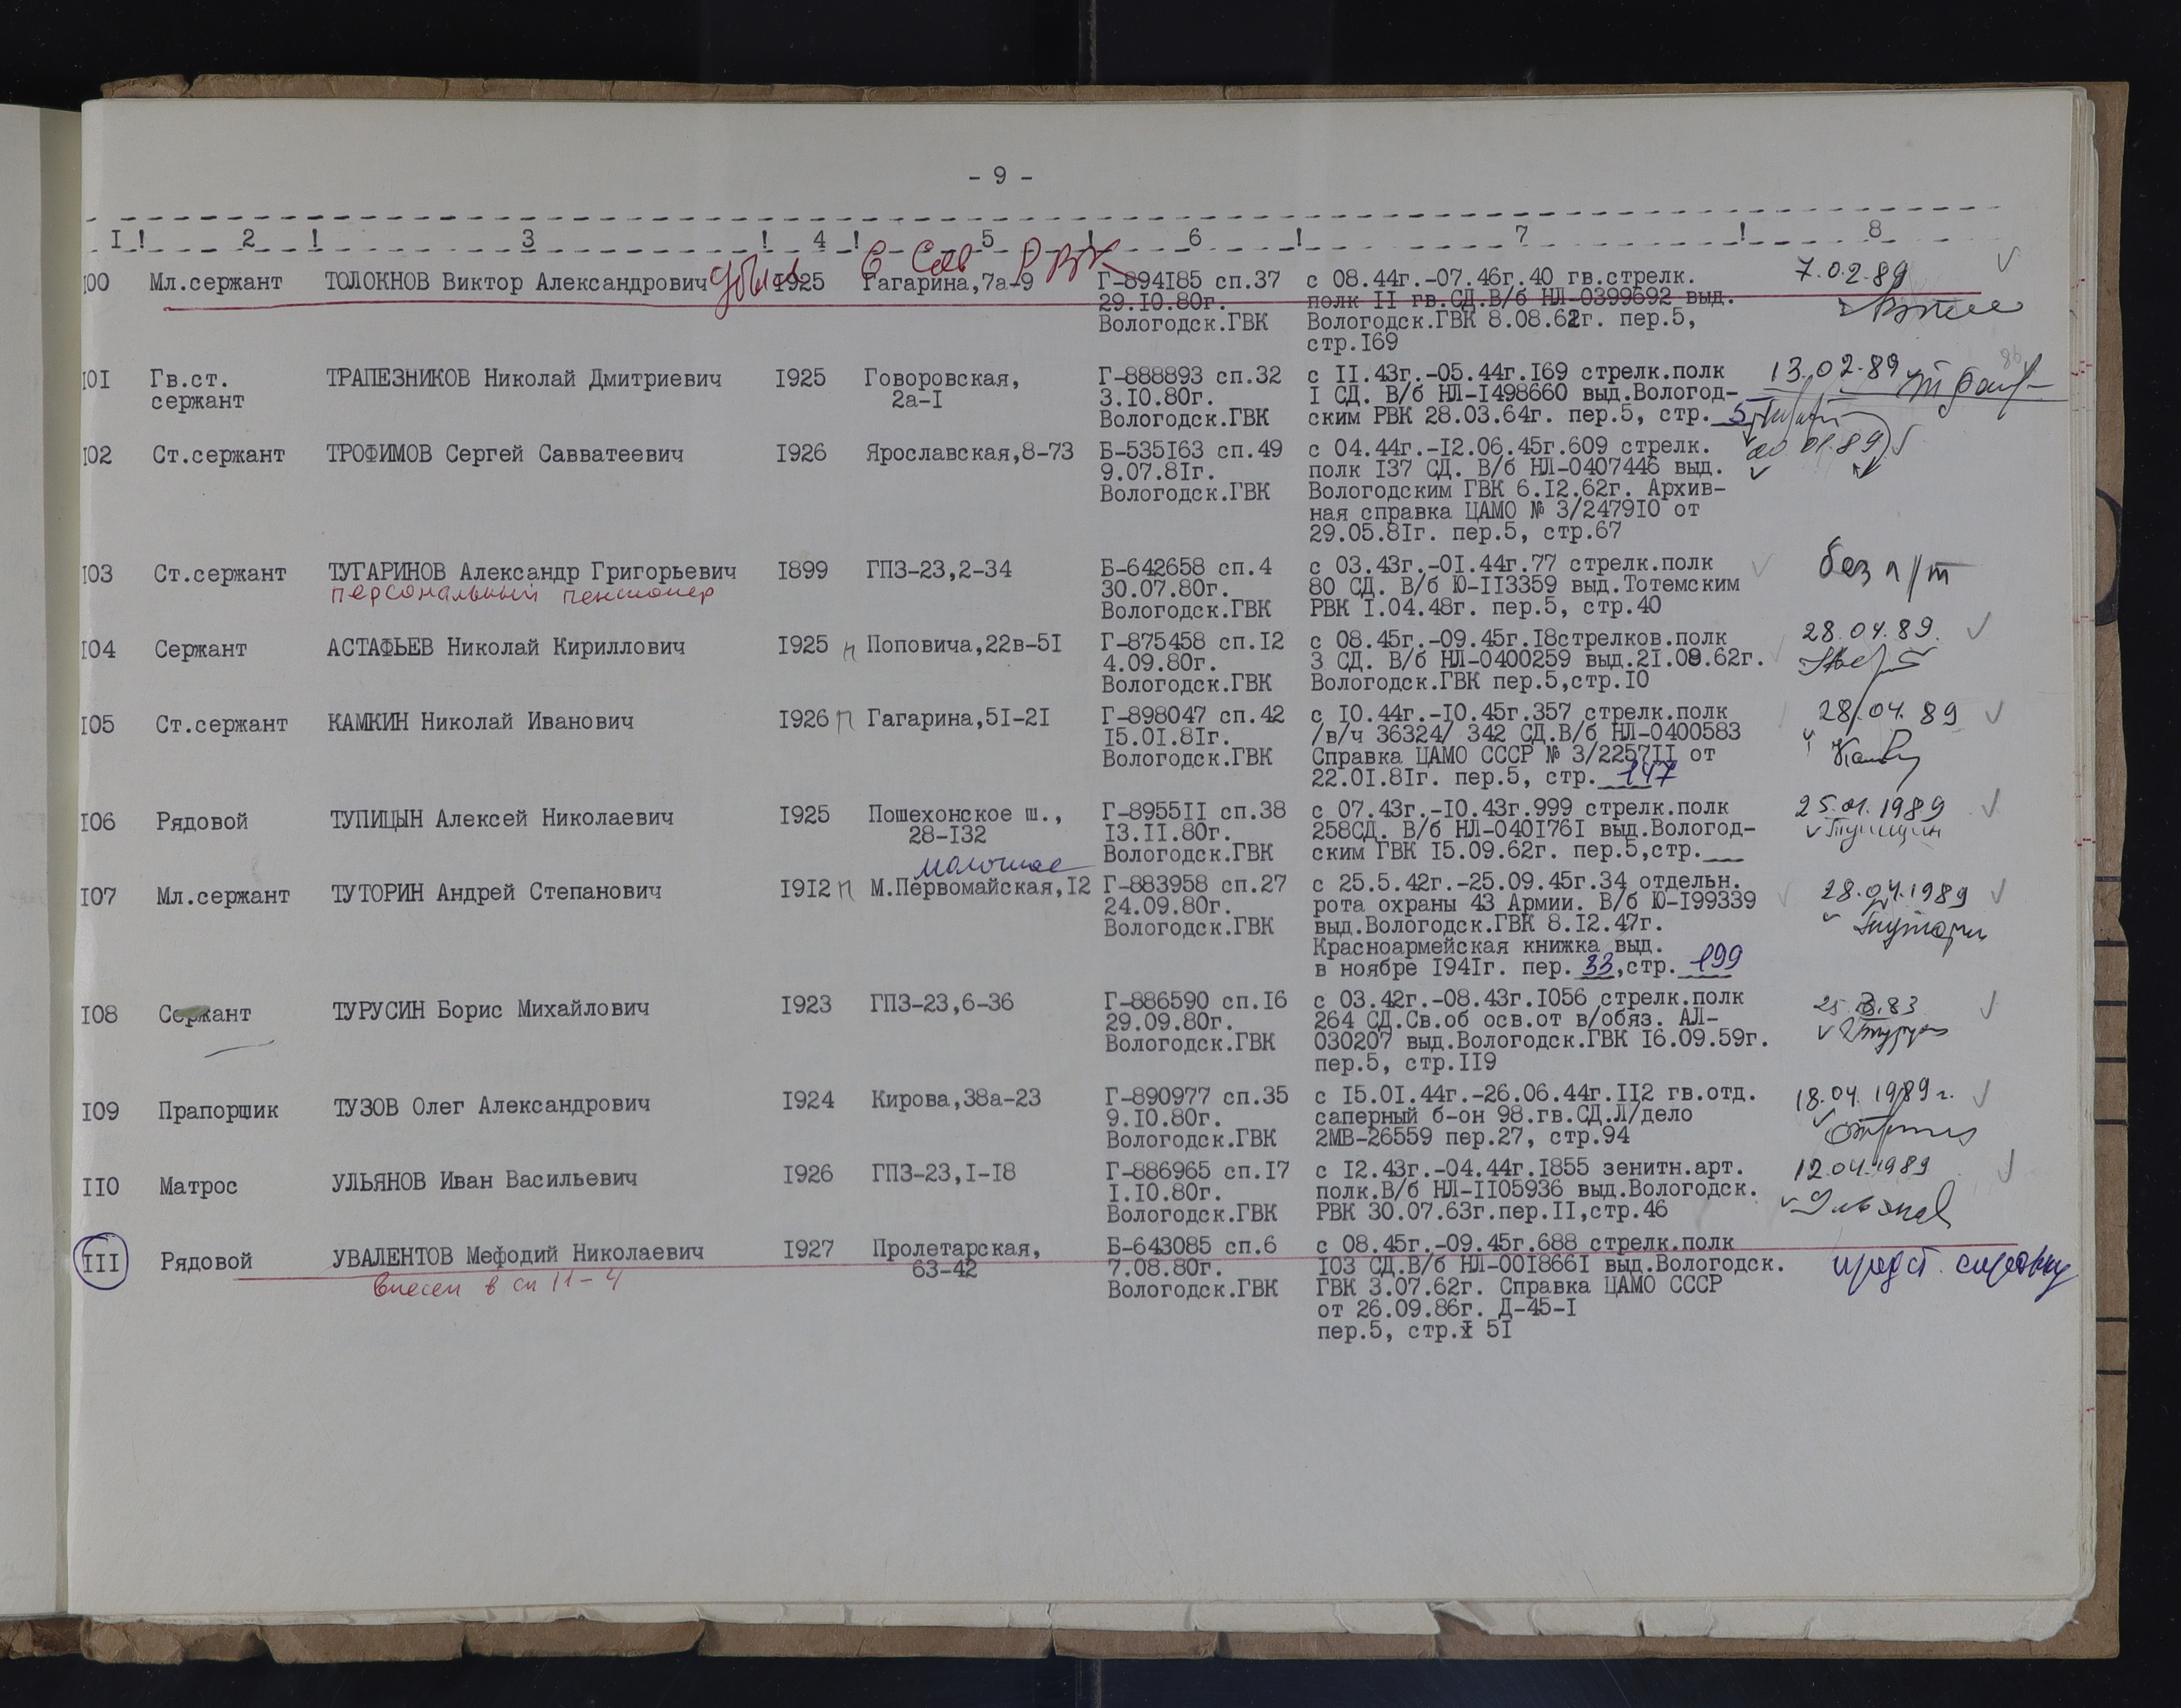 - 9 -
I ! 2 ! 3 ! 4 ! 5 ! 6 ! 7 ! 8
убыл в Сов РВК
I00 Мл.сержант ТОЛОКНОВ Виктор Александрович I925 Гагарина,7а-9 Г-894I85 сп.37 с 08.44г.-07.46г.40 гв.стрелк. 7.02.89
29.I0.80г. полк II гв.СД.В/б НЛ-0399692 выд.
Вологодск.ГВК Вологодск.ГВК 8.08.62г. пер.5,
стр.I69
I0I Гв.ст. ТРАПЕЗНИКОВ Николай Дмитриевич I925 Говоровская, Г-888893 сп.32 с II.43г.-05.44г.I69 стрелк.полк 13.02.89
сержант 2а-I 3.I0.80г. I СД. В/б НЛ-I498660 выд.Вологод-
Вологодск.ГВК ским РВК 28.03.64г. пер.5, стр. 5
I02 Ст.сержант ТРОФИМОВ Сергей Савватеевич I926 Ярославская,8-73 Б-535I63 сп.49 с 04.44г.-I2.06.45г.609 стрелк. 01.89
9.07.8Iг. полк I37 СД. В/б НЛ-0407446 выд.
Вологодск.ГВК Вологодским ГВК 6.I2.62г. Архив-
ная справка ЦАМО № 3/2479I0 от
29.05.8Iг. пер.5, стр.67
I03 Ст.сержант ТУГАРИНОВ Александр Григорьевич I899 ГПЗ-23,2-34 Б-642658 сп.4 с 03.43г.-0I.44г.77 стрелк.полк без п/т
персональный пенсионер 30.07.80г. 80 СД. В/б Ю-II3359 выд.Тотемским
Вологодск.ГВК РВК I.04.48г. пер.5, стр.40
I04 Сержант АСТАФЬЕВ Николай Кириллович I925 п Поповича,22в-5I Г-875458 сп.I2 с 08.45г.-09.45г.I8стрелков.полк 28.04.89.
4.09.80г. 3 СД. В/б НЛ-0400259 выд.2I.08.62г.
Вологодск.ГВК Вологодск.ГВК пер.5,стр.I0
I05 Ст.сержант КАМКИН Николай Иванович I926 п Гагарина,5I-2I Г-898047 сп.42 с I0.44г.-I0.45г.357 стрелк.полк 28/04.89
I5.0I.8Iг. /в/ч 36324/ 342 СД.В/б НЛ-0400583
Вологодск.ГВК Справка ЦАМО СССР № 3/2257II от
22.0I.8Iг. пер.5, стр. 147
I06 Рядовой ТУПИЦЫН Алексей Николаевич I925 Пошехонское ш., Г-8955II сп.38 с 07.43г.-I0.43г.999 стрелк.полк 25.01.1989
28-I32 I3.II.80г. 258СД. В/б НЛ-040I76I выд.Вологод- Тупицын
Вологодск.ГВК ским ГВК I5.09.62г. пер.5,стр.__
Молочное
I07 Мл.сержант ТУТОРИН Андрей Степанович I9I2 п М.Первомайская,I2 Г-883958 сп.27 с 25.5.42г.-25.09.45г.34 отдельн. 28.04.1989
24.09.80г. рота охраны 43 Армии. В/б Ю-I99339
Вологодск.ГВК выд.Вологодск.ГВК 8.I2.47г. Тутори
Красноармейская книжка выд.
в ноябре I94Iг. пер. 33,стр. 199
I08 Сержант ТУРУСИН Борис Михайлович I923 ГПЗ-23,6-36 Г-886590 сп.I6 с 03.42г.-08.43г.I056 стрелк.полк
29.09.80г. 264 СД.Св.об осв.от в/обяз. АЛ-
Вологодск.ГВК 030207 выд.Вологодск.ГВК I6.09.59г.
пер.5, стр.II9
I09 Прапорщик ТУЗОВ Олег Александрович I924 Кирова,38а-23 Г-890977 сп.35 с I5.0I.44г.-26.06.44г.II2 гв.отд. 18.04.1989г.
9.I0.80г. саперный б-он 98.гв.СД.Л/дело
Вологодск.ГВК 2МВ-26559 пер.27, стр.94
II0 Матрос УЛЬЯНОВ Иван Васильевич I926 ГПЗ-23,I-I8 Г-886965 сп.I7 с I2.43г.-04.44г.I855 зенитн.арт. 12.04.1989
I.I0.80г. полк.В/б НЛ-II05936 выд.Вологодск.
Вологодск.ГВК РВК 30.07.63г.пер.II,стр.46 Ульянов
III Рядовой УВАЛЕНТОВ Мефодий Николаевич I927 Пролетарская, Б-643085 сп.6 с 08.45г.-09.45г.688 стрелк.полк предст. справку
внесен в сп 11-4 63-42 7.08.80г. I03 СД.В/б НЛ-00I866I выд.Вологодск.
Вологодск.ГВК ГВК 3.07.62г. Справка ЦАМО СССР
от 26.09.86г. Д-45-I
пер.5, стр. 5I